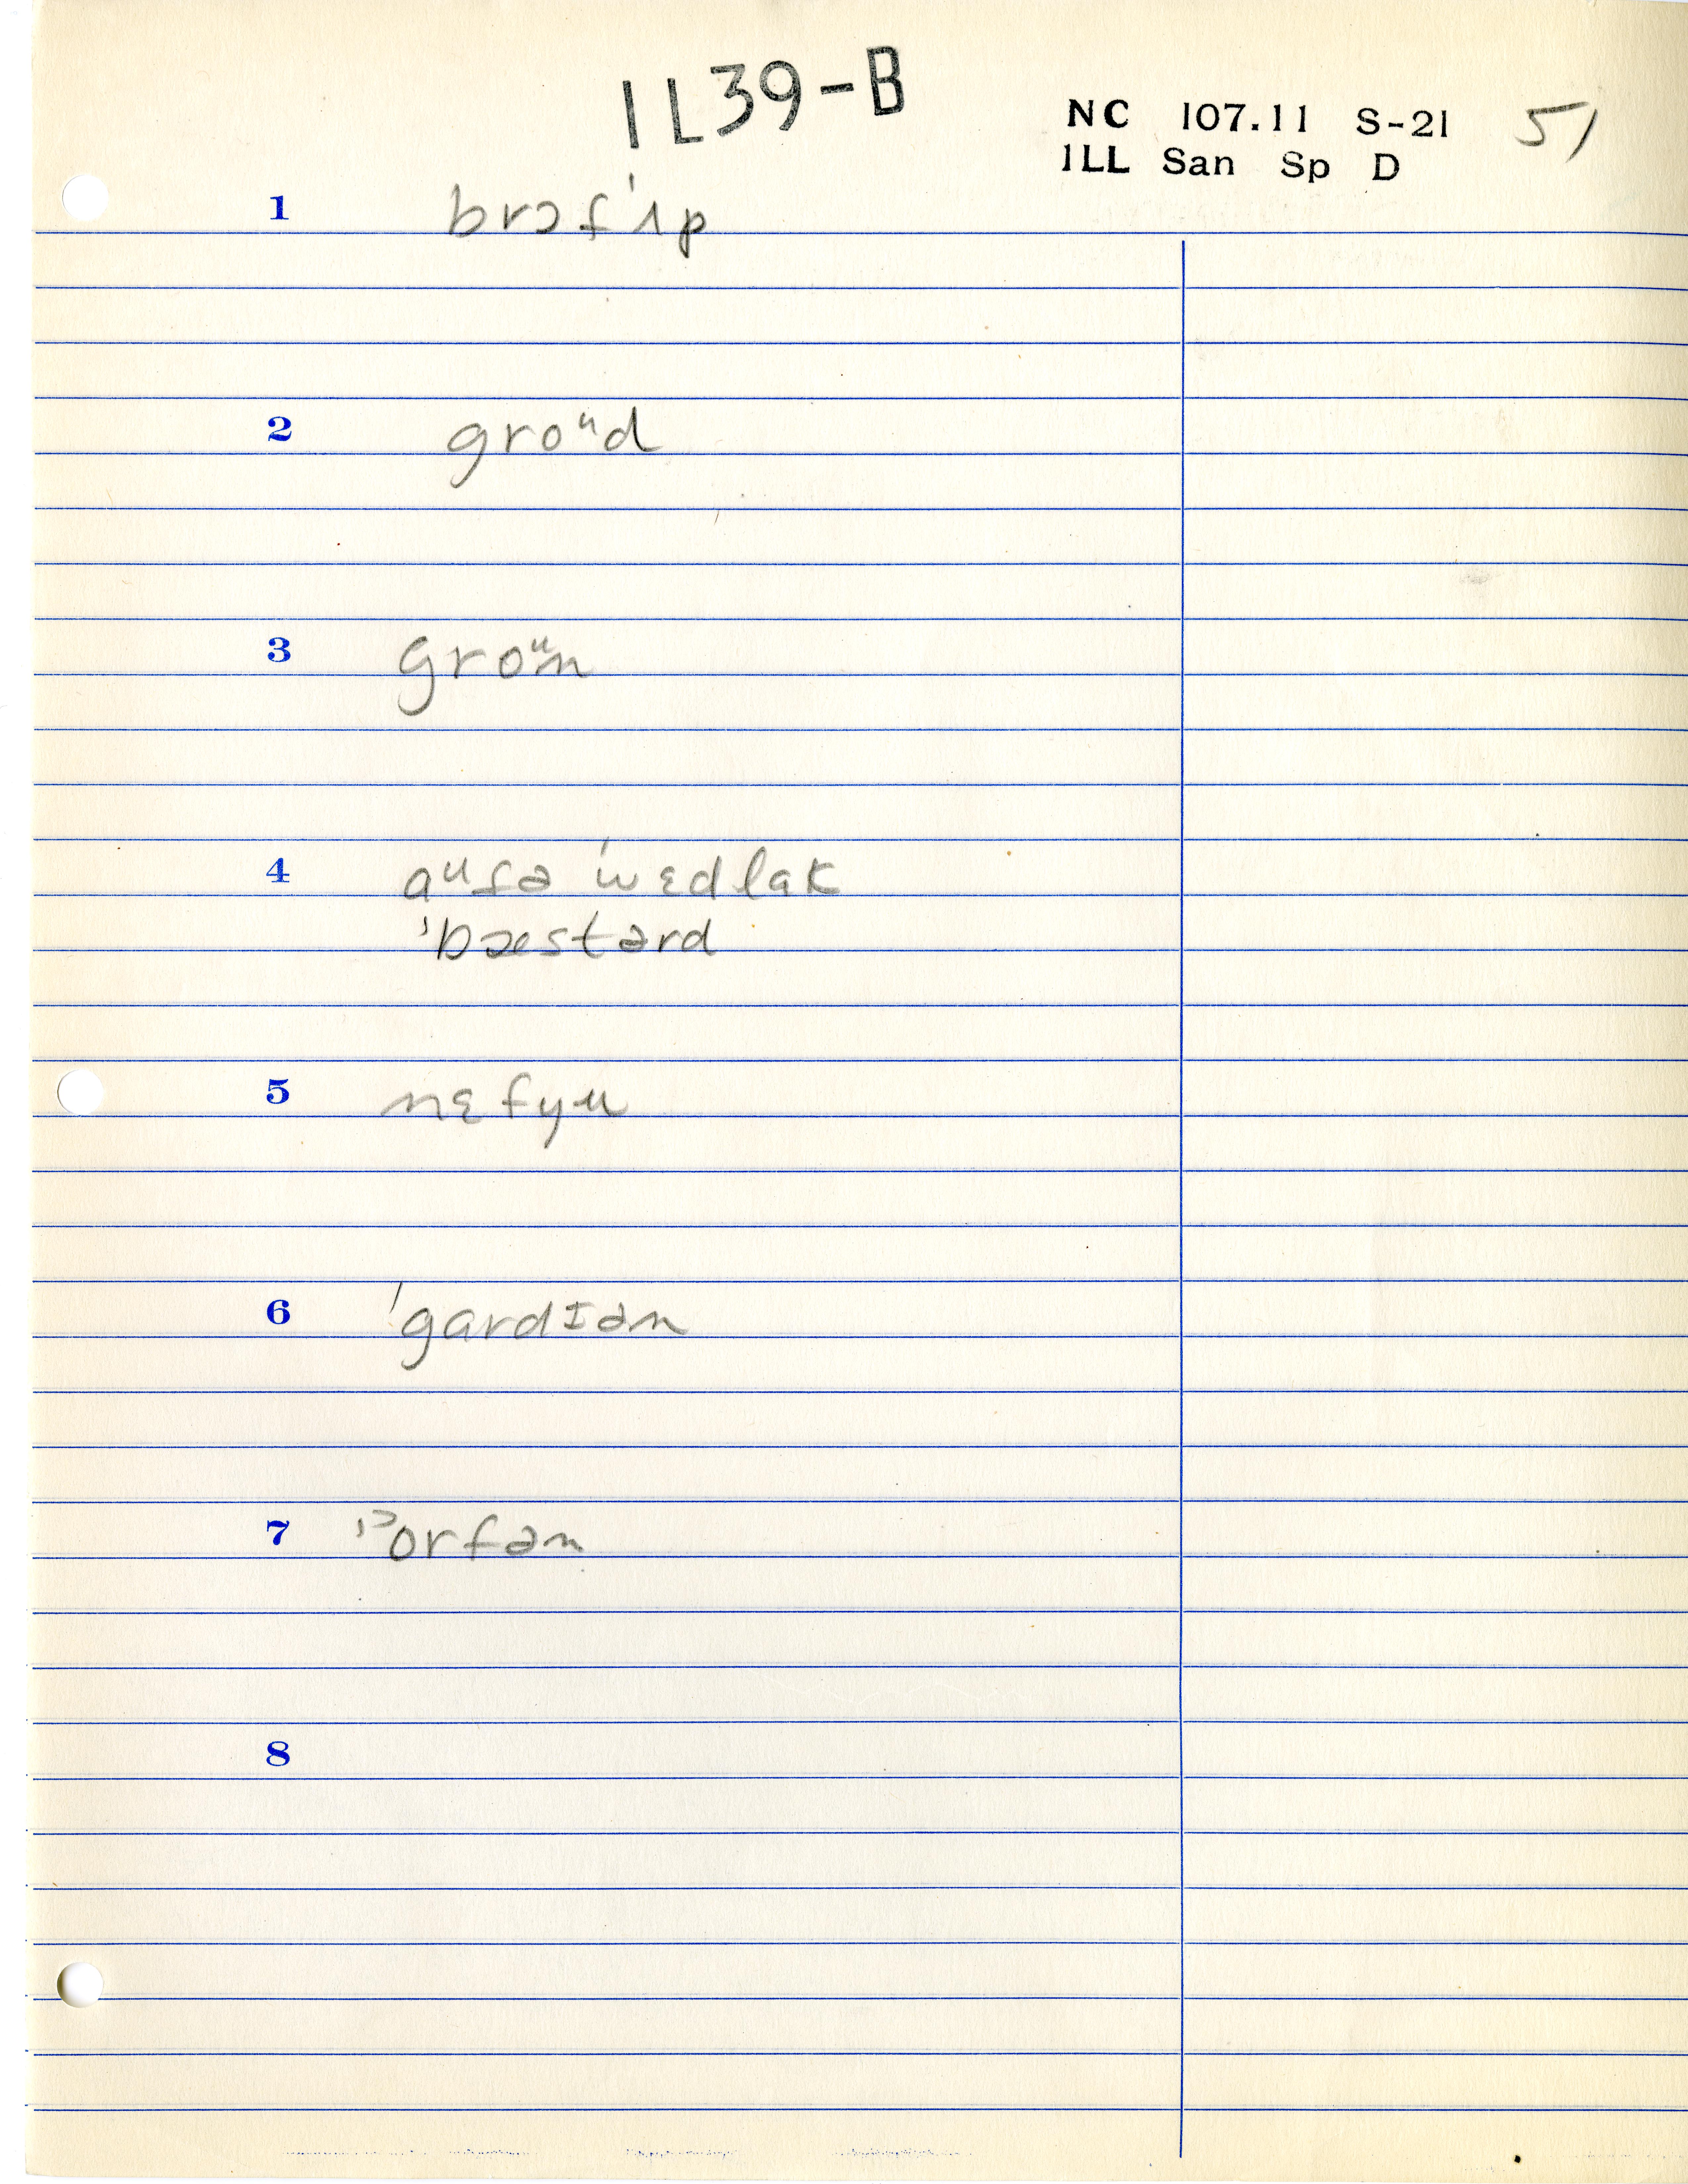 IL39-B
NC 107.11 S-21 51
ILL San Sp D
1 brɔt ˈʌp
2 groᵘd
3 groᵘn
4 aᵘtə ˈwɛdlak
ˈbæstərd
5 nɛfyu
6 ˈgardɪən
7 ˈɔorfən
8